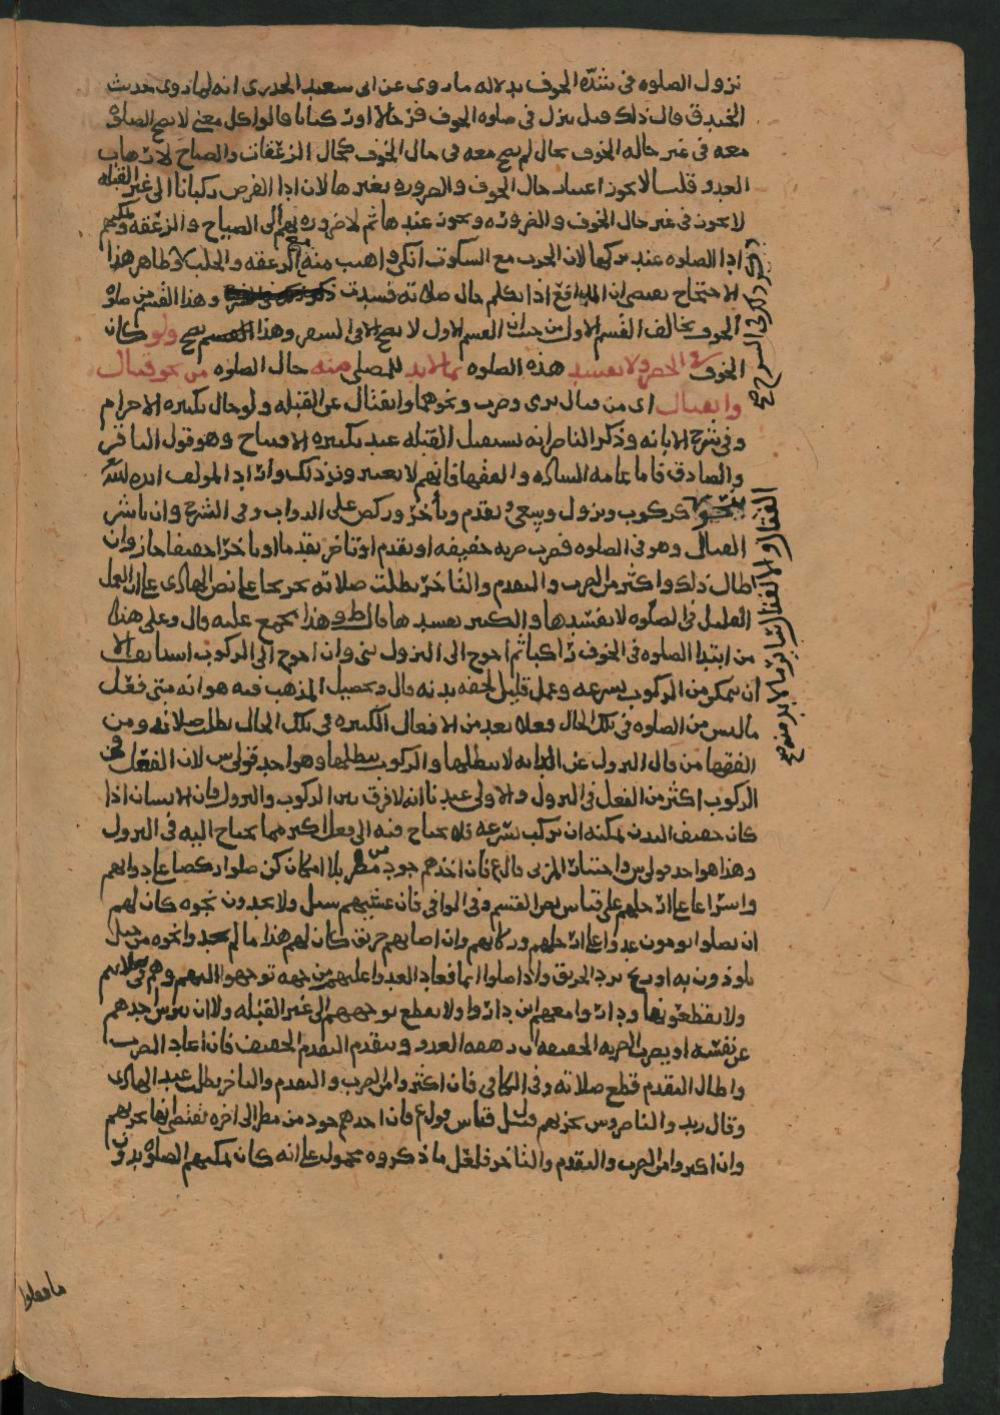 نزول الصلوه فى شدّه الخوف بدلاله ما روى عن ابى سعيد الخدرى انه لما روى حديث
الخندق قال ذلك قبل نزل فى صلوه الخوف فرجالا او ركبانا قالوا كل معنى لا تصح الصلوه
معه فى غير حاله الخوف بحال لم تصح معه فى حال الخوف كحال الزعقات والصياح لارهاب
العدو قلنا لا يجوز اعتبار حال الخوف والضروره بغيرها لان اذا الفرض ركبانا الى غير القبله
لا يجوز فى غير حال الخوف والضروره ويجوز عندها ثم لا ضروره بهم الى الصياح والزعقه ويمكنهم
اذا الصلوه عند تركها لان الحرب مع السكوت انكى واهيب منه مع الزعقه والجلبه وظاهر هذا
الاحتجاج يقتضى ان المدافع اذا تكلم حال صلاته فسدت وهذا القسم من صلوه
الخوف يخالف القسم الاول من حيث ان القسم الاول لا يصح الا فى السفر وهذا القسم يصح ولو كان
الخوف فى الحضر ولا تفسد هذه الصلوه بما لا بد للمصلى منه حال الصلوه من نحو قتال
وانفتال اى من قتال برمى وضرب ونحوهما وانفتال عن القبله ولو حال تكبيره الاحرام
وفى شرح الابانه وذكر الناصر انه يستقبل القبله عند تكبيره الافتتاح وهو قول الباقر
والصادق فاما عامه الساده والفقها فانهم لا يعتبرون ذلك واراد المولف ايده الله
بنحو كركوب ونزول وسعى وتقدم وتأخر وركض على الدواب وفى الشرح وان باشر
القتال وهو فى الصلوه فضرب ضربه خفيفه او تقدم او تاخر تقدما او تاخرا خفيفا جاز وان
اطال ذلك واكثر من الضرب والتقدم والتاخر بطلت صلاته تخريجا على نص الهادى على ان الفعل
القليل فى الصلوه لا يفسدها والكثير يفسدها قال ط وهذا مجمع عليه قال وعلى هذا
من ابتدا الصلوه فى الخوف راكبا ثم احوج الى النزول بنى وان احوج الى الركوب استانف الا
ان يتمكن من الركوب بسرعه وعمل قليل لخفه بدنه قال وتحصيل المذهب فيه هو انه متى فعل
ما ليس من الصلوه فى تلك الحال فعلا يعد من الافعال الكثيره فى تلك الحال بطلت صلاته ومن
الفقها من قال النزول عن الدابه لا يبطلها والركوب يبطلها وهو احد قولى ش لان الفعل فى
الركوب اكثر من الفعل فى النزول والاولى عندنا انه لا فرق بين الركوب والنزول فان الانسان اذا
كان خفيف البدن يمكنه ان يركب بسرعه فلا يحتاج فيه الى فعل اكثر مما يحتاج اليه فى النزول
وهذا هو احد قولى ش واختيار المزنى قال ع فان اخذهم جود من مطر بلا امكان كن صلوا ركضا على دوابهم
واسراعا على ارجلهم على قياس نص القسم وفى الوافى فان غشيهم سيل ولا يجدون نجوه كان لهم
ان يصلوا يومون عدوا على ارجلهم وركابهم وان اصابهم حريق كان لهم هذا ما لم يجدوا نجوه من جبل
يلوذون به او ريح ترد الحريق واذا صلوا ايما فعاد العدو عليهم من جهه توجهوا اليهم وهم فى صلاتهم
ولا يقطعونها وداروا معهم اين داروا ولا يقطع توجههم الى غير القبله ولا ان يترس احدهم
عن نفسه او يضرب الضربه الخفيفه ان رهقه العدو ويتقدم التقدم الخفيف فان اعاد الضرب
واطال التقدم قطع صلاته وفى الكافى فان اكثروا من الضرب والتقدم والتاخر بطلت عند الهادى
وقال زيد والناصر وش تجزيهم وقيل قياس قول ع فان اخذهم جود من مطر الى اخره تقتضى انها تجزيهم
وان اكثروا من الضرب والتقدم والتاخر فلعل ما ذكروه محمول على انه كان يمكنهم الصلوه بدون
ما فعلوا